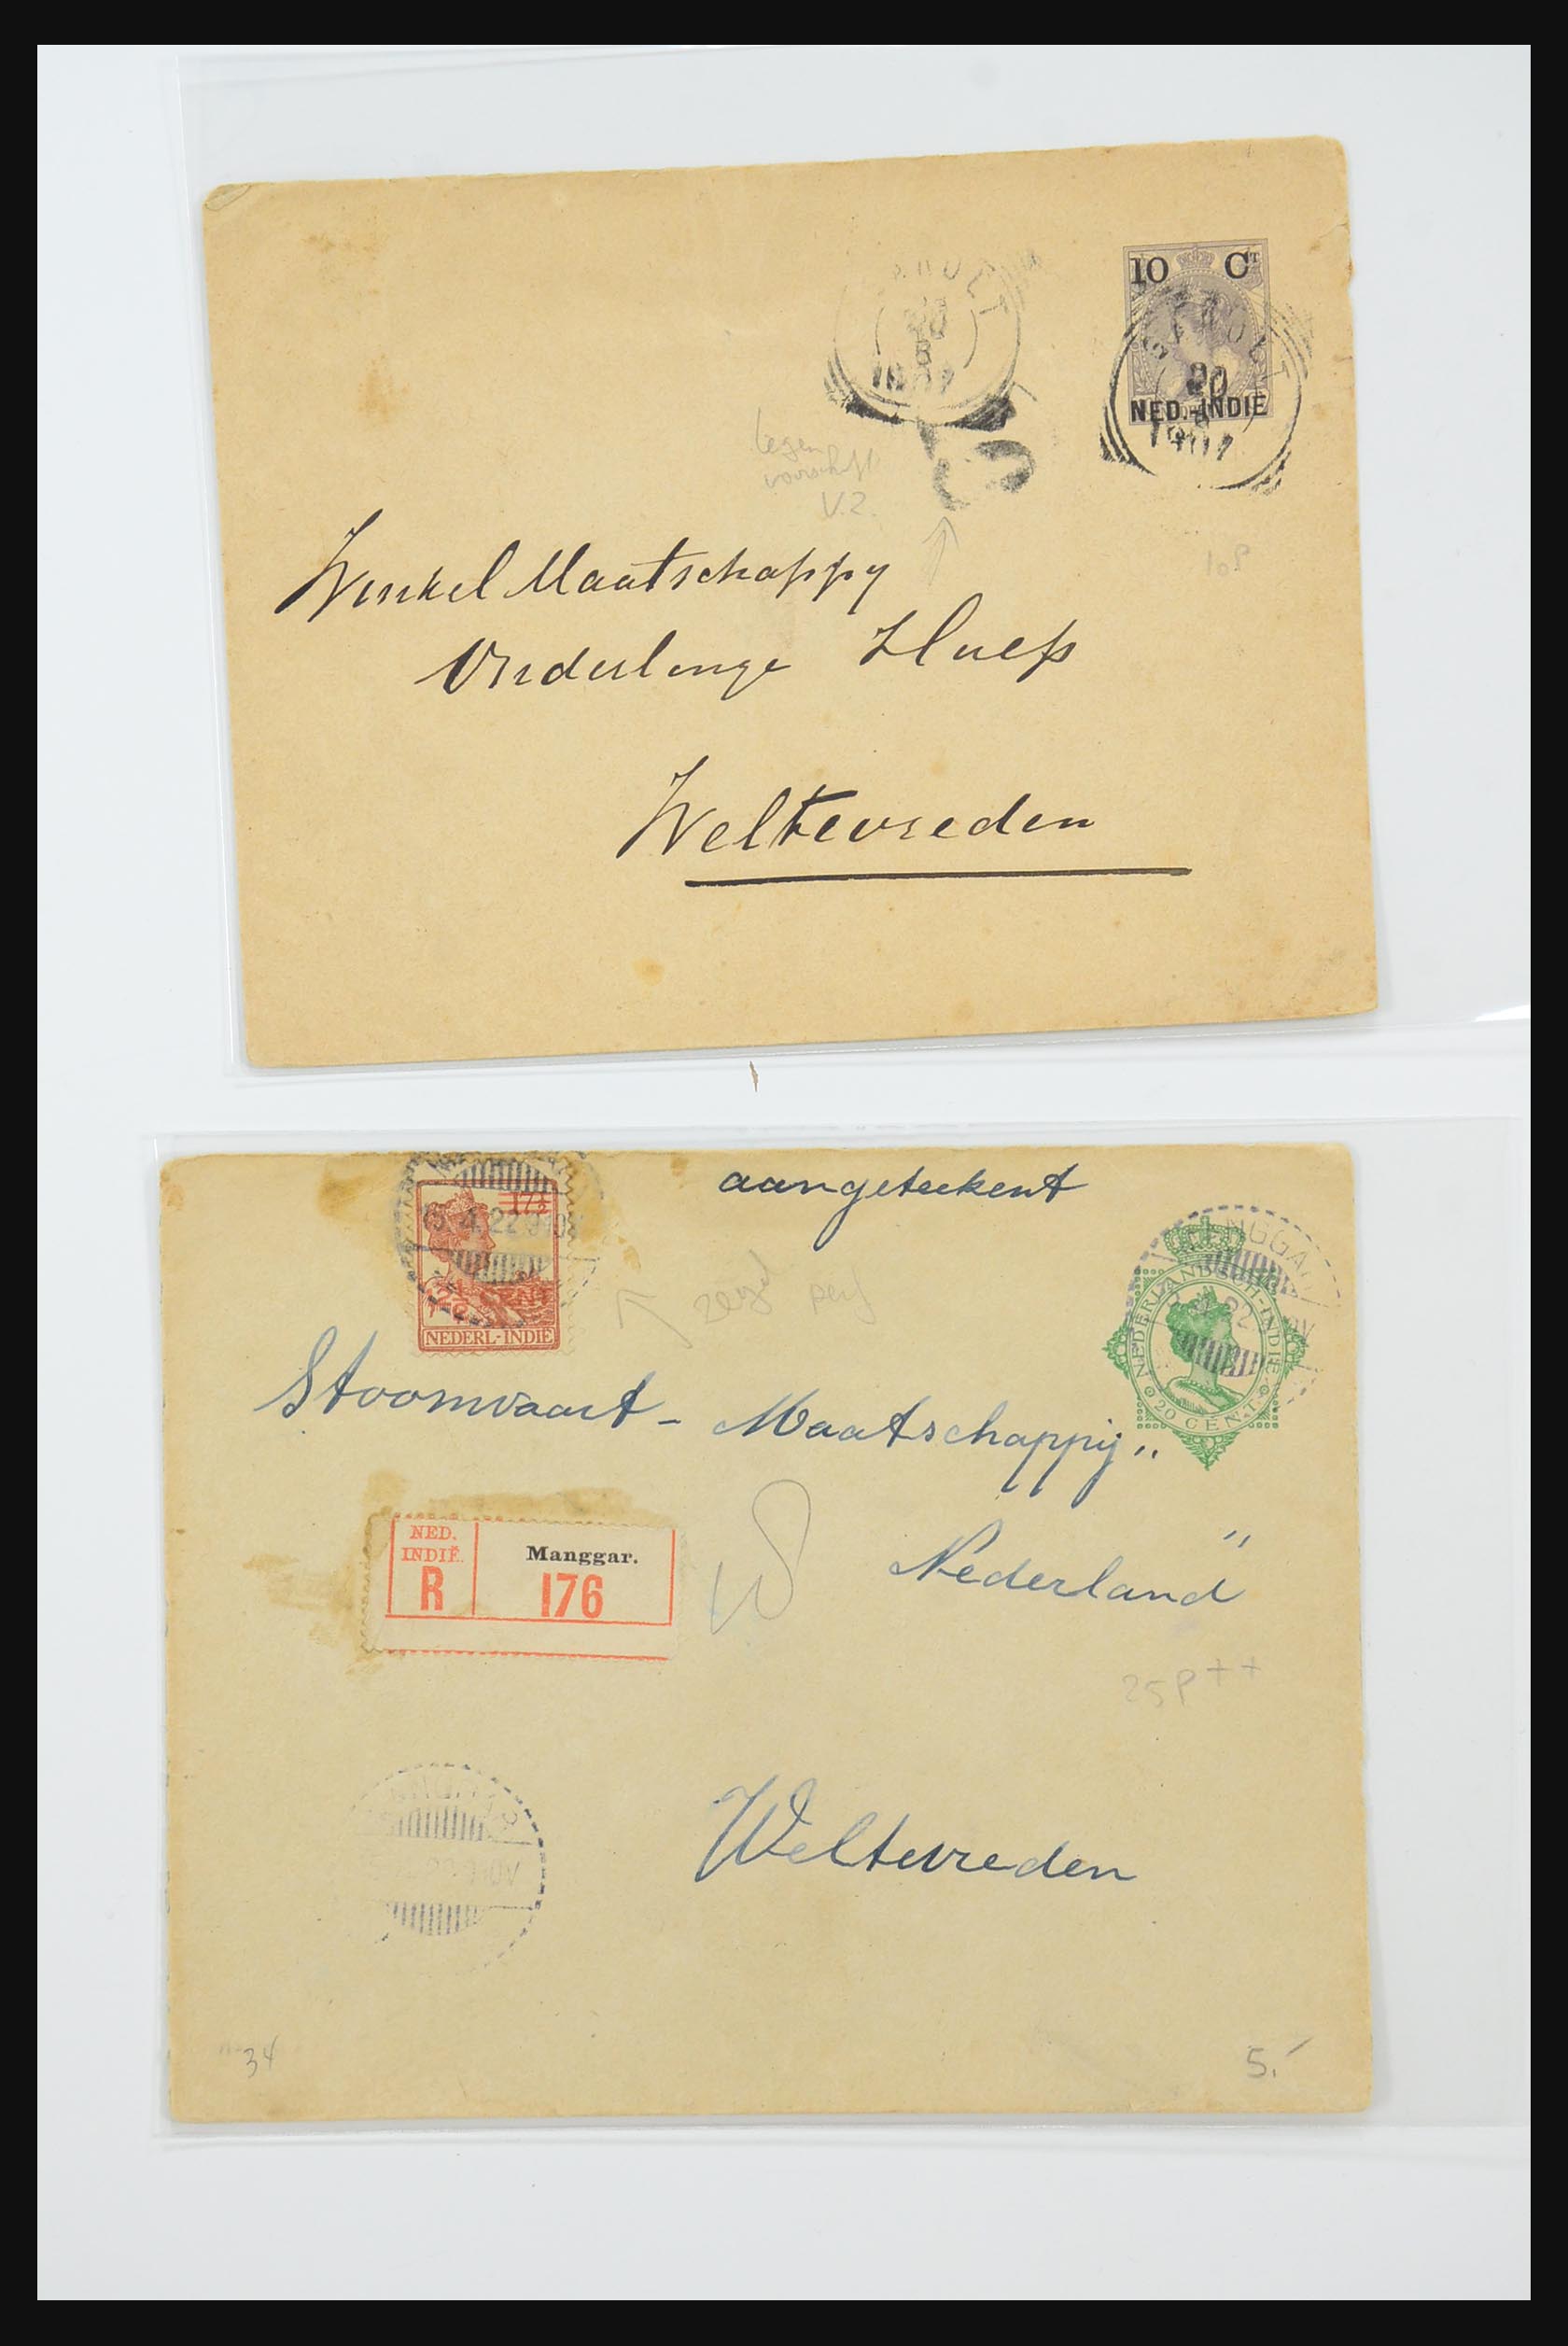 10 CT
NED.-INDIË
20
8
1907
tegen
voorschrift
V.2.
10P
Winkel Maatschappy
Onderlinge Hulp
Weltevreden
aangeteekent
17½
15.4.22
CENT
NEDERL-INDIË
zegel perf
NEDERLANDSCH-INDIË
20 CENT
Stoomvaart - Maatschappij "
Nederland"
NED.
INDIË.
R
Manggar.
176
25P++
Weltevreden
34
5.-